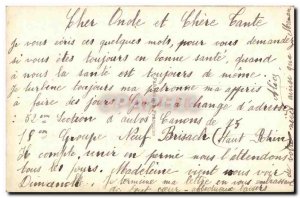 Cher Oncle et Chère Tante
Je vous écris ces quelques mots, pour vous demander
si vous êtes toujours en bonne santé, quand
à nous la santé est toujours de même.
Je turbine toujours ma patronne ma appris
à faire des jours change d'adresse
62em Section d'autos Canons de 75
18em Groupe Neuf Brisach (Haut Rhin
Il compte venir en perme nous l'attendons
tous les jours. Madeleine vient nous voir
Dimanche. Je termine ma lettre en vous embrassant
de tout cœur
baisers